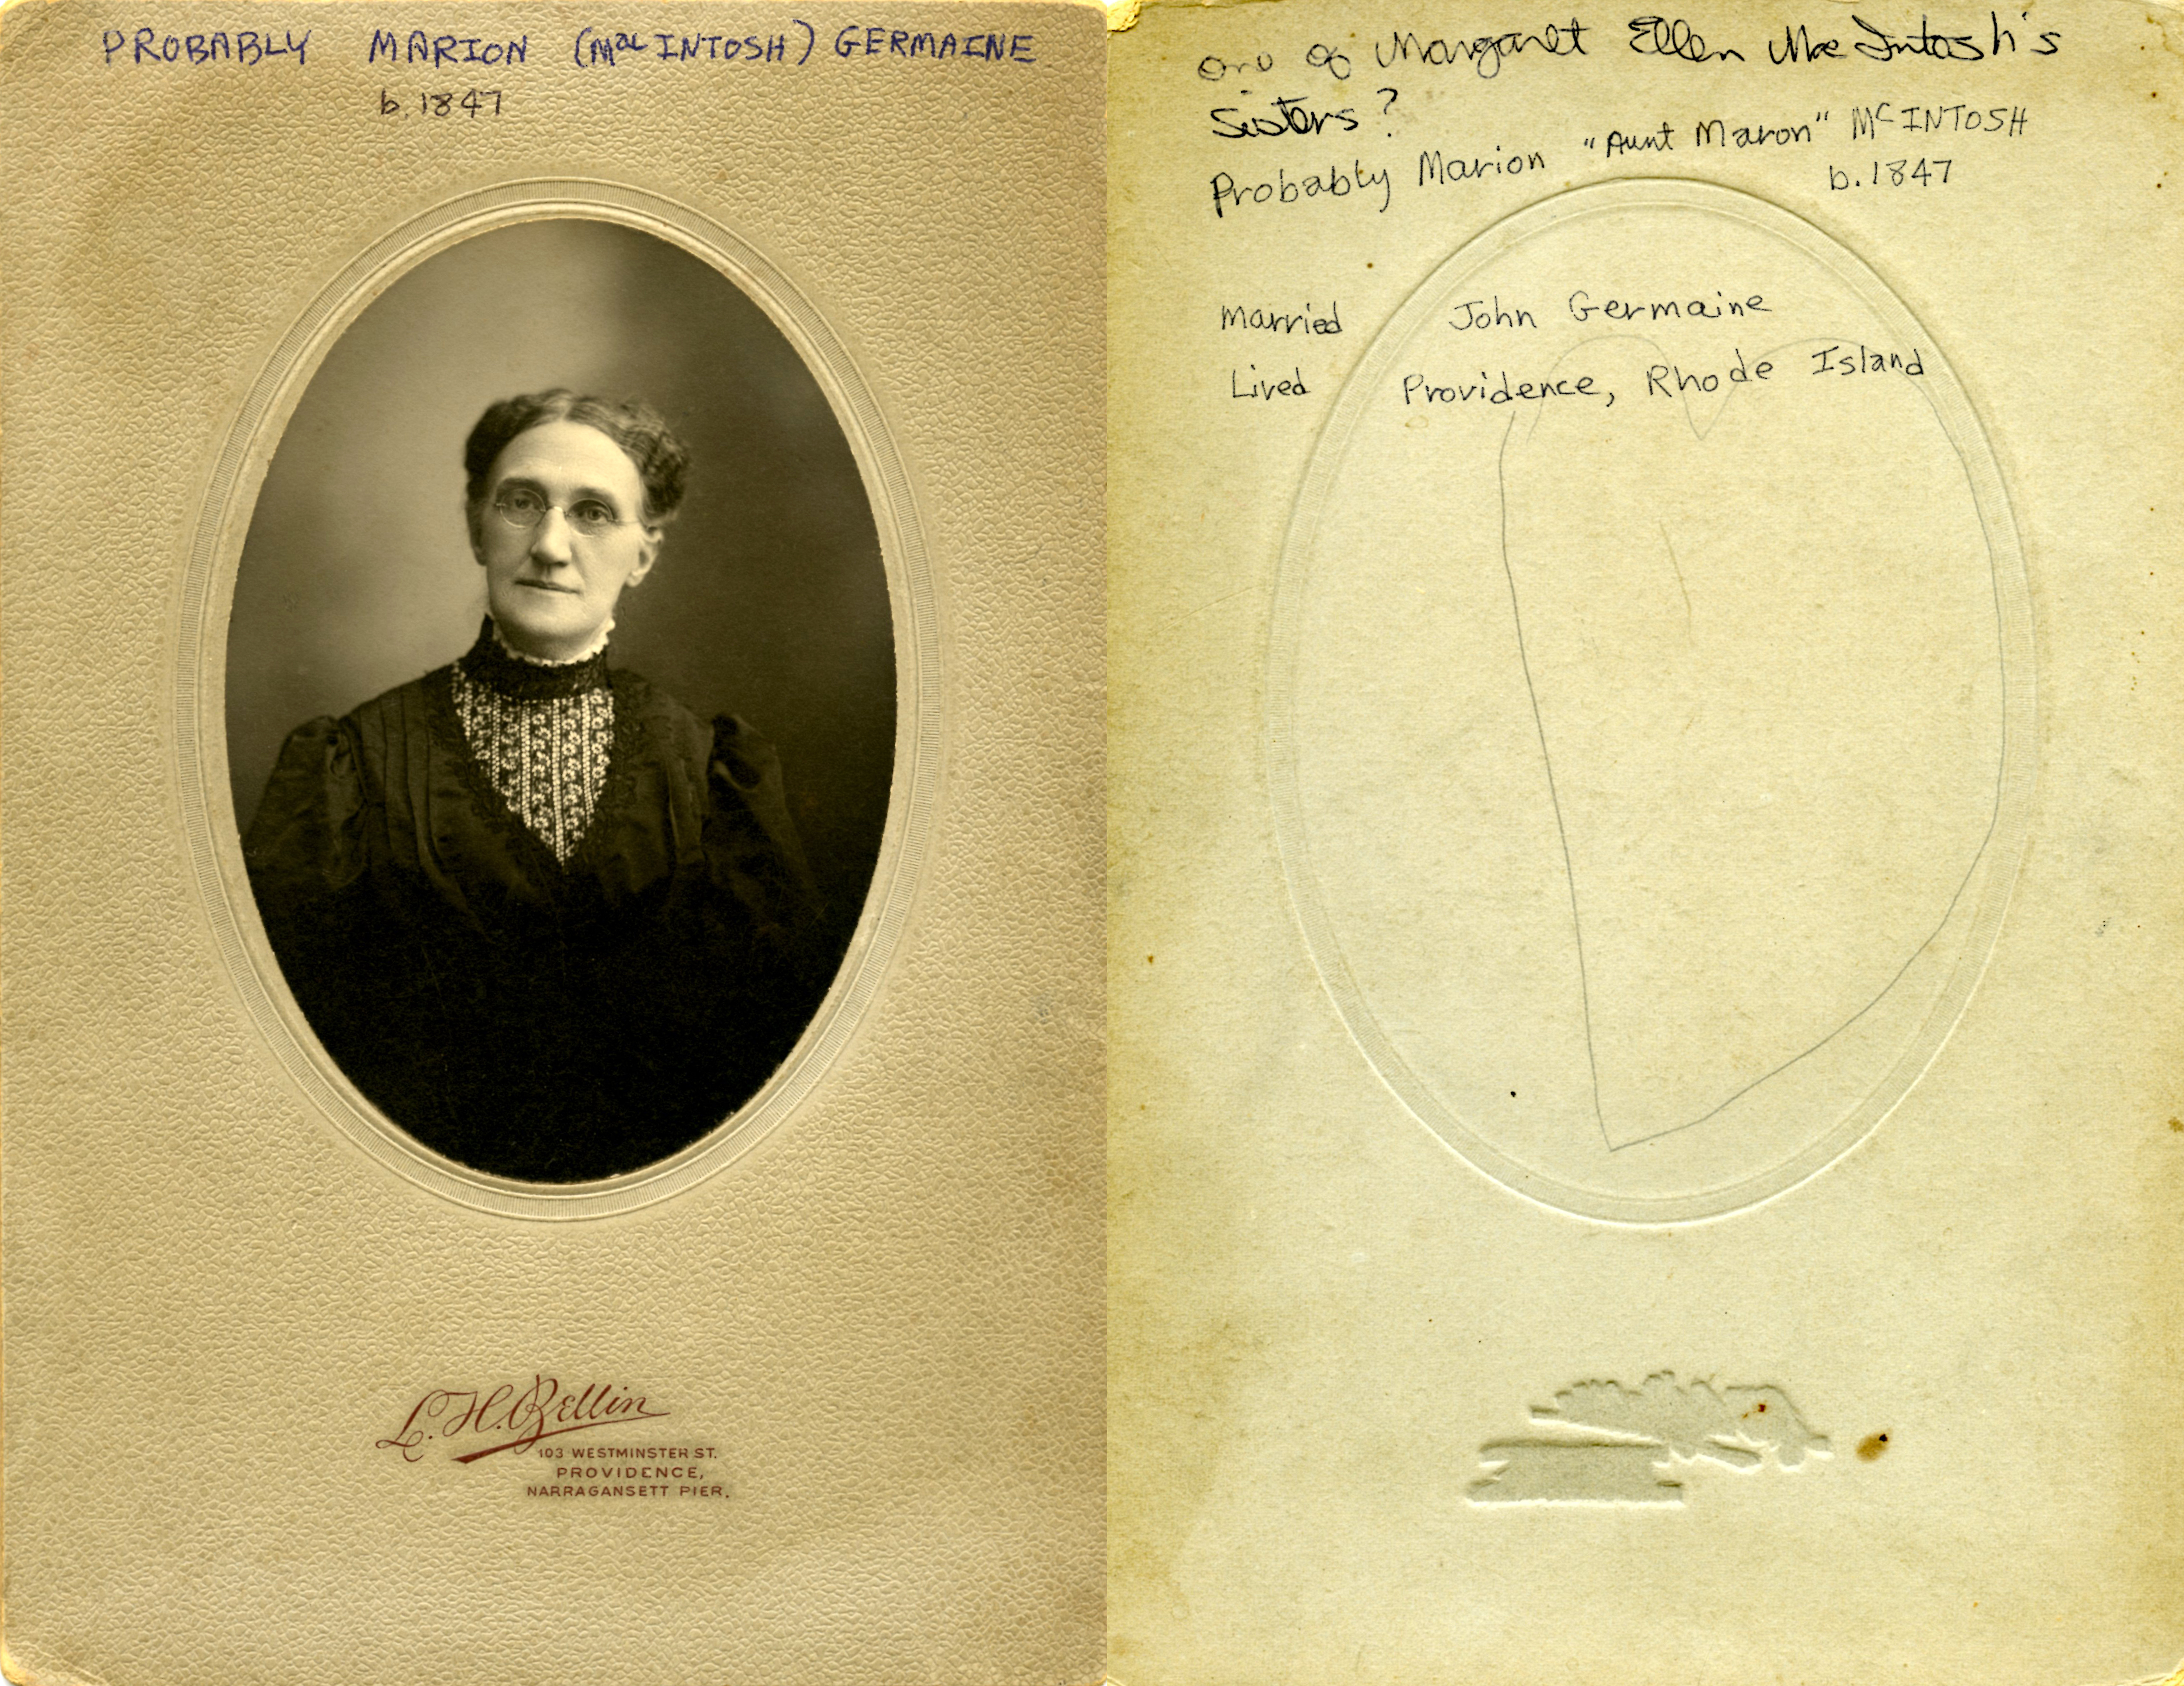 PROBABLY MARION (Mac INTOSH) GERMAINE
b. 1847
L. H. Bellin
103 WESTMINSTER ST.
PROVIDENCE,
NARRAGANSETT PIER.
one of Margaret Ellen MacIntosh's
Sisters?
Probably Marion "Aunt Maron" McINTOSH
b. 1847
Married John Germaine
Lived Providence, Rhode Island